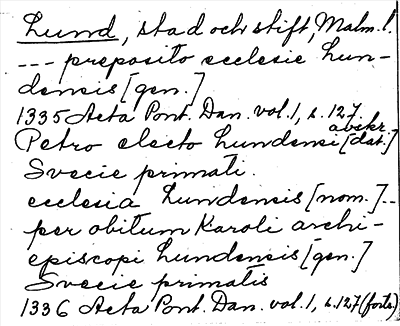 Lund, stad och stift, Malm. l.
--- preposito ecclesie Lun-
densis [gen.]
1335 Acta Pont. Dan. vol. 1, s. 127.
avskr.
Petro electo Lundensi [dat.]
Svecie primati.
ecclesia Lundensis [nom.]--
per obitum Karoli archi-
episcopi Lundensis [gen.]
Svecie primatis
1336 Acta Pont. Dan. vol. 1, s. 127 (forts.)